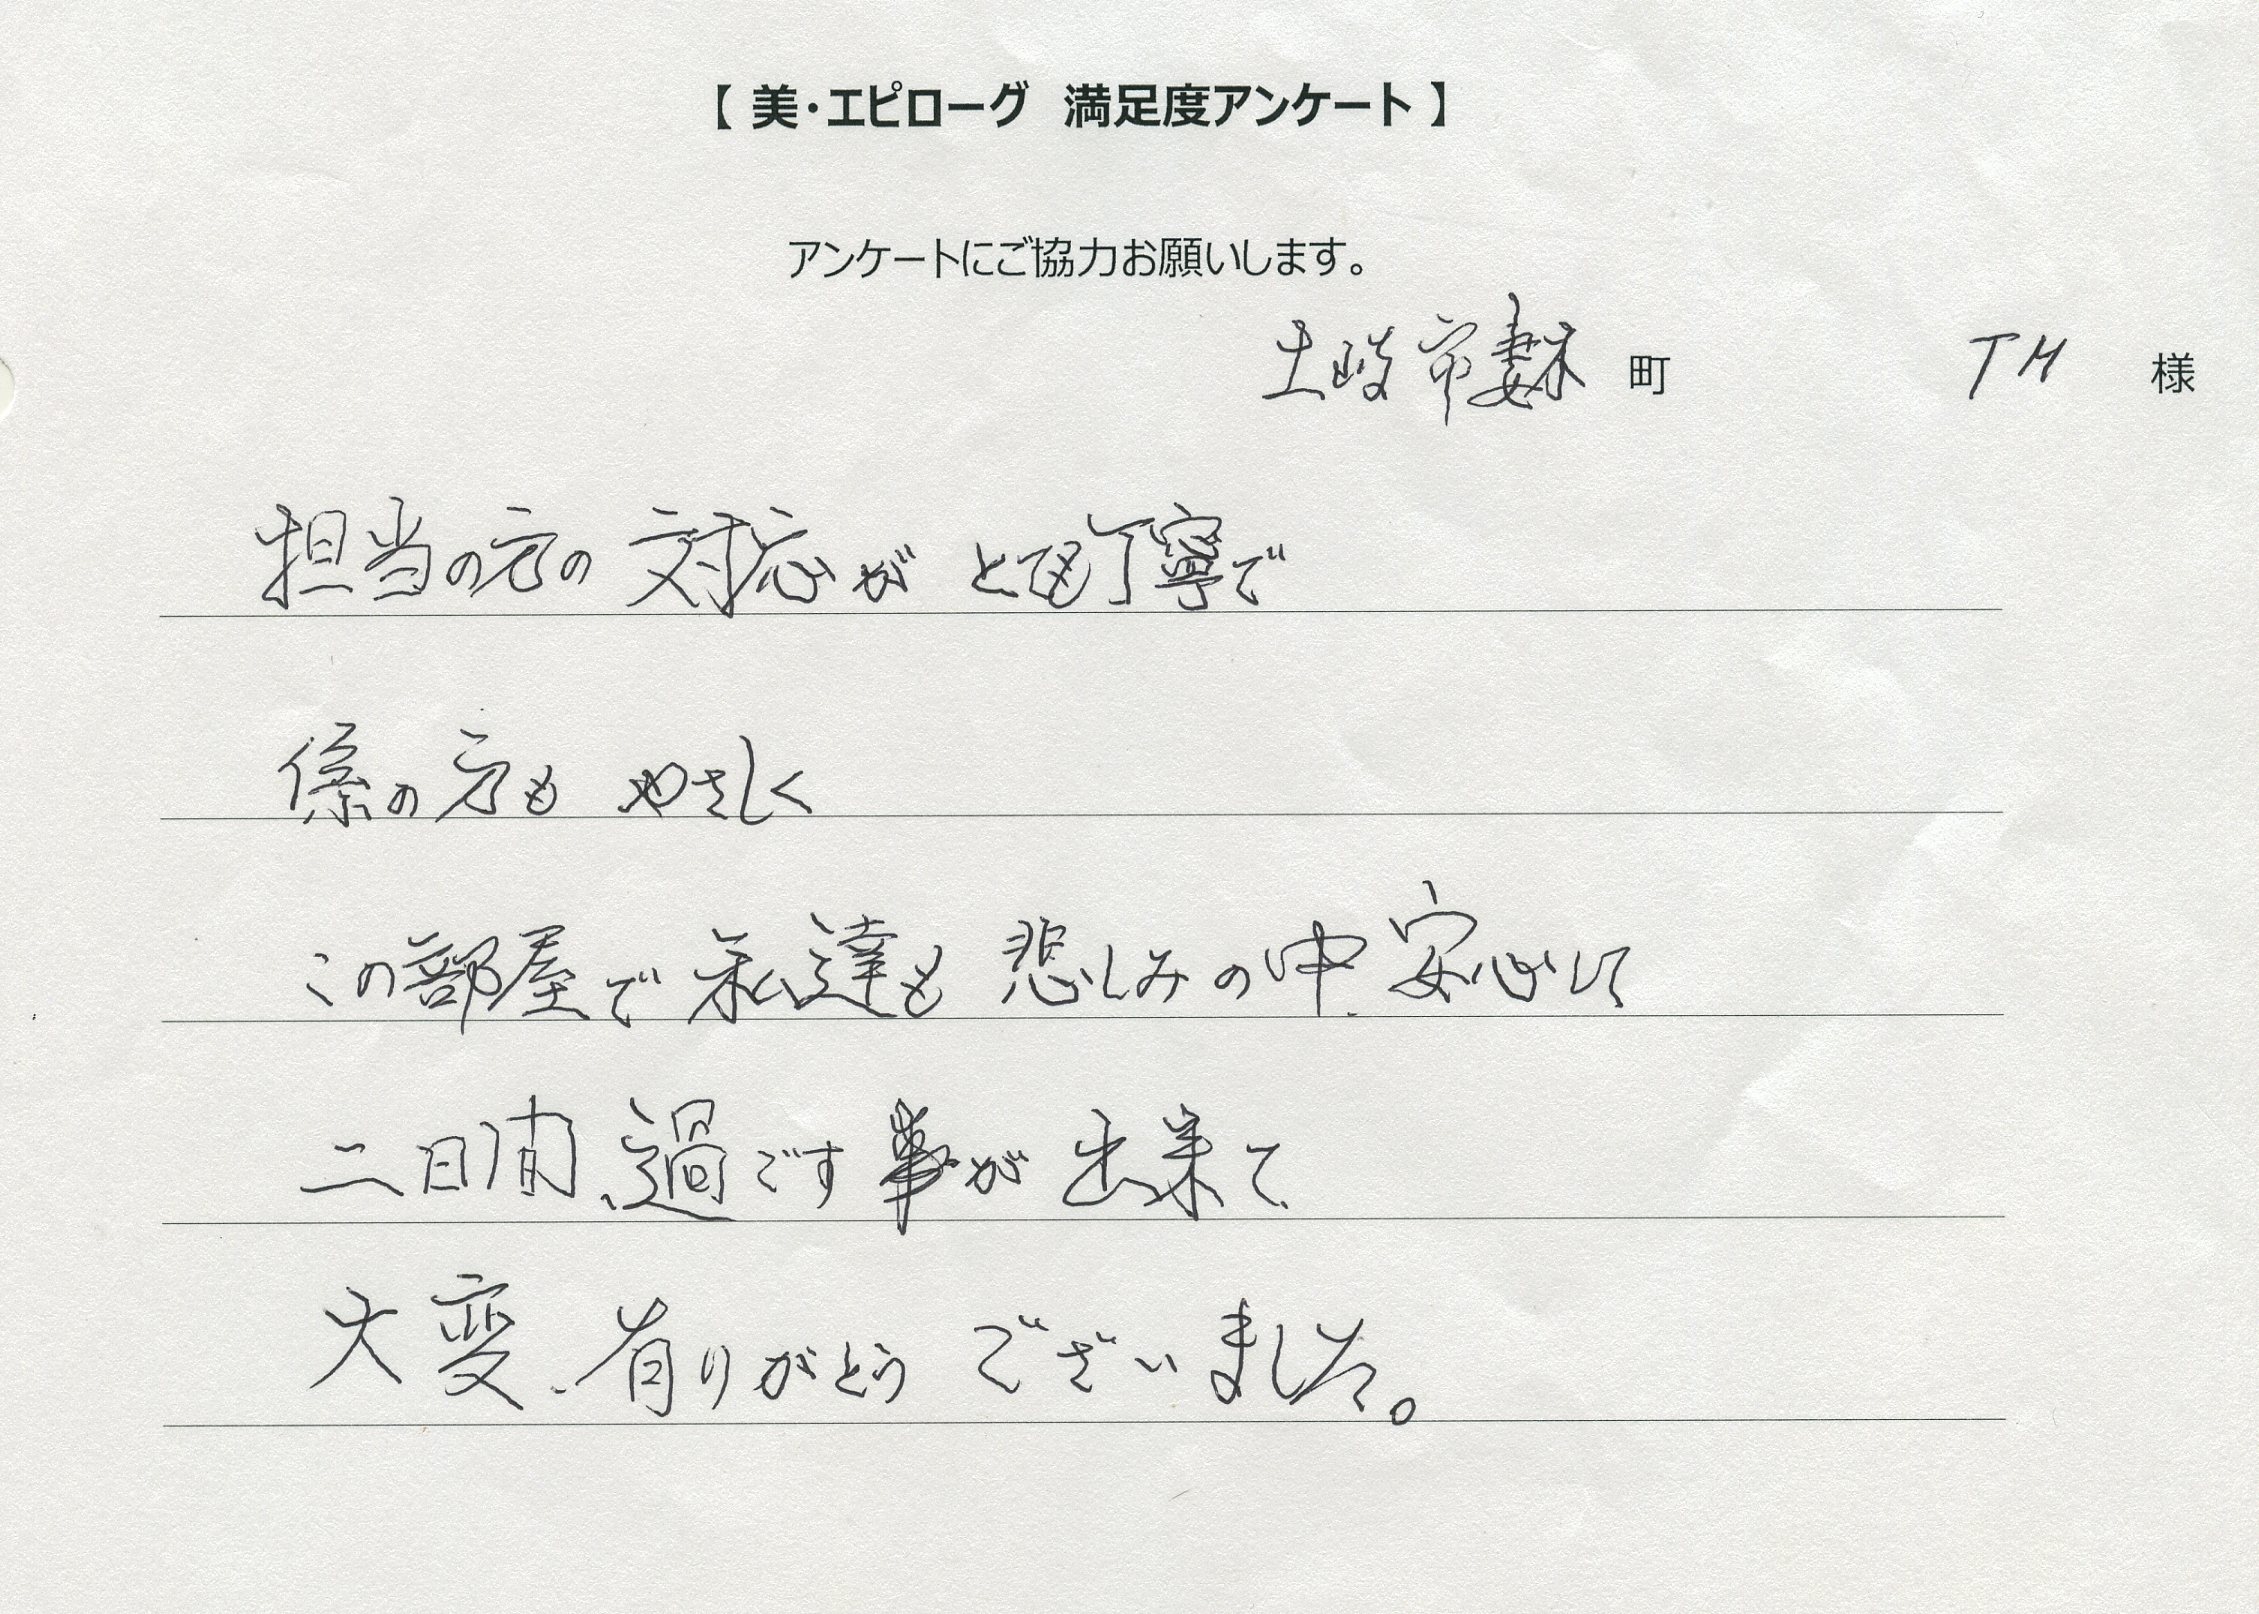 【 美・エピローグ 満足度アンケート 】
アンケートにご協力お願いします。
土岐市妻木 町 TM 様
担当の方の対応がとても丁寧で
係の方もやさしく
この部屋で私達も悲しみの中、安心して
二日間、過ごす事が出来て
大変、有りがとうございました。